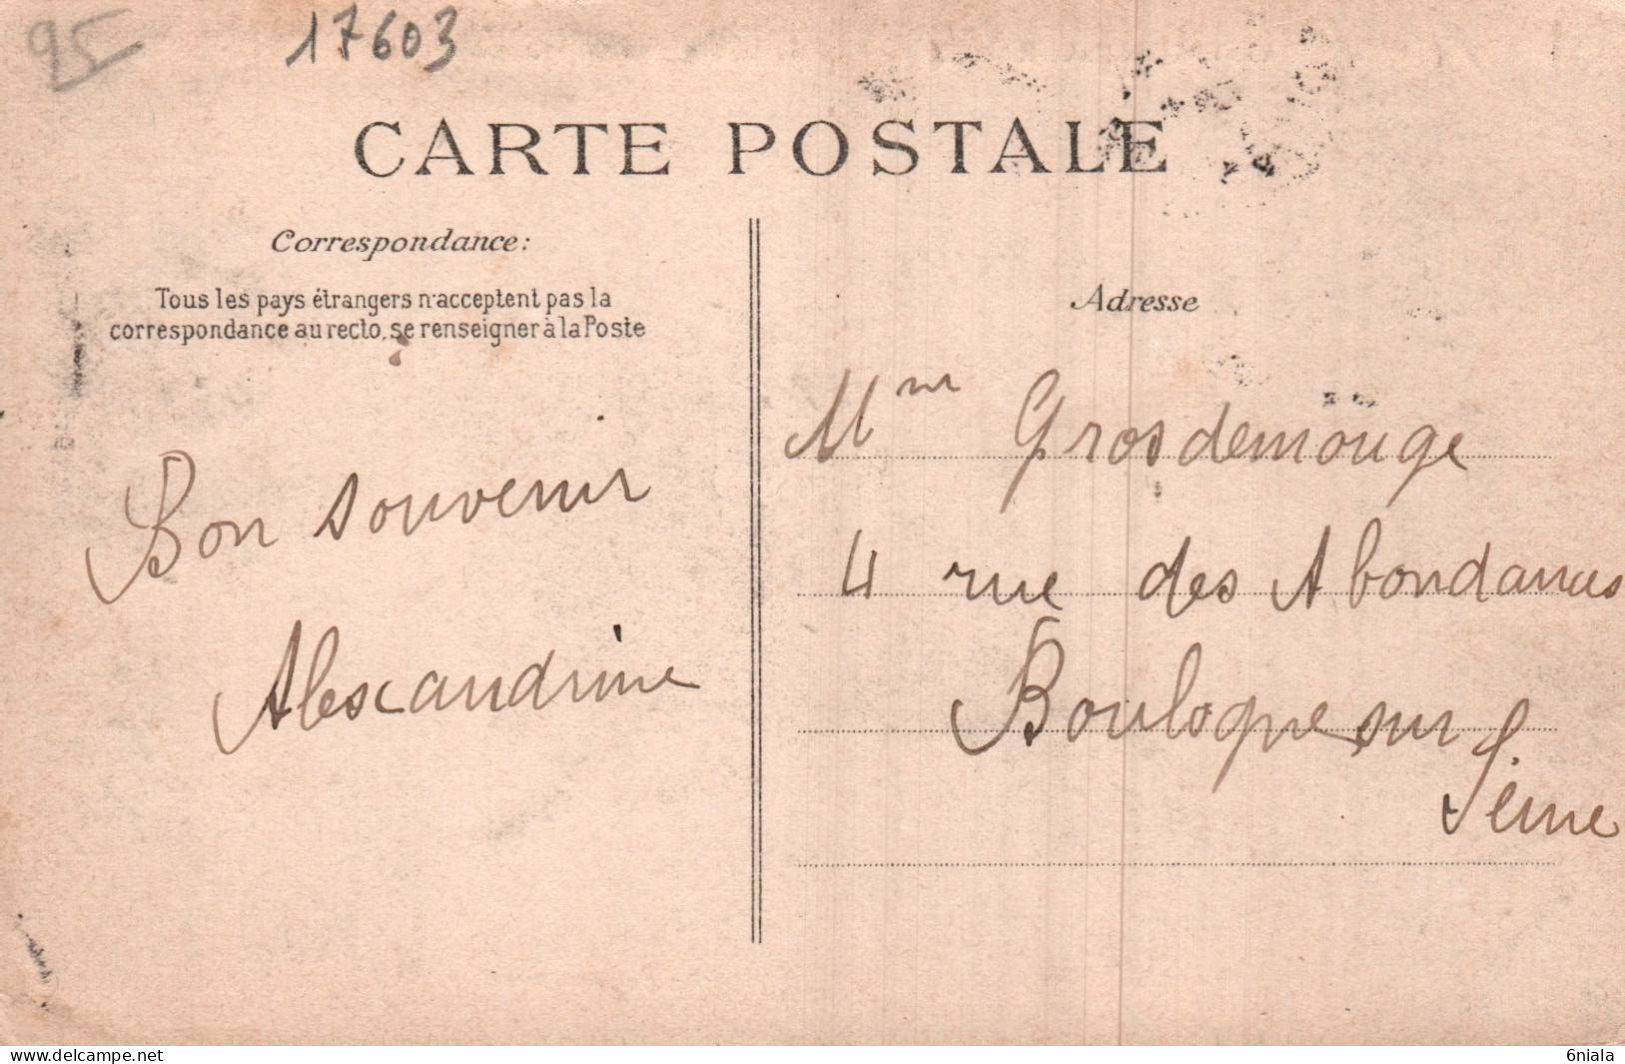 95
17603
CARTE POSTALE
Correspondance:
Tous les pays étrangers n'acceptent pas la
correspondance au recto, se renseigner à la Poste
Bon souvenir
Alexandrine
Adresse
Mme Grosdemouge
4 rue des Abondances
Boulogne sur
Seine
www.delcampe.net
6niala